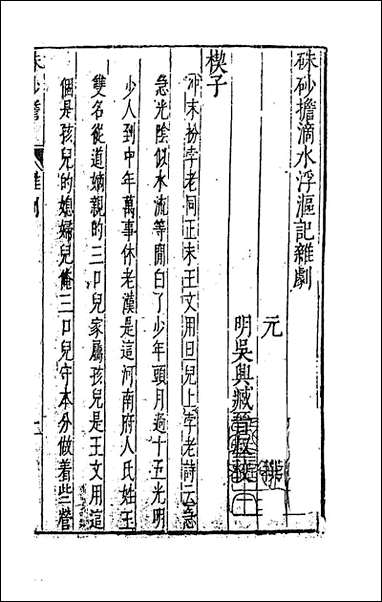 硃砂擔滴水浮漚記雜劇
元 撰
明吳興臧晉叔校
楔子
沖末扮孛老同正末王文用旦兒上孛老詩云急
急光陰似水流等閒白了少年頭月過十五光明
少人到中年萬事休老漢是這河南府人氏姓王
雙名從道嫡親的三口兒家屬孩兒是王文用這
個是孩兒的媳婦兒俺三口兒守本分做着些營
硃砂擔 雜劇 一